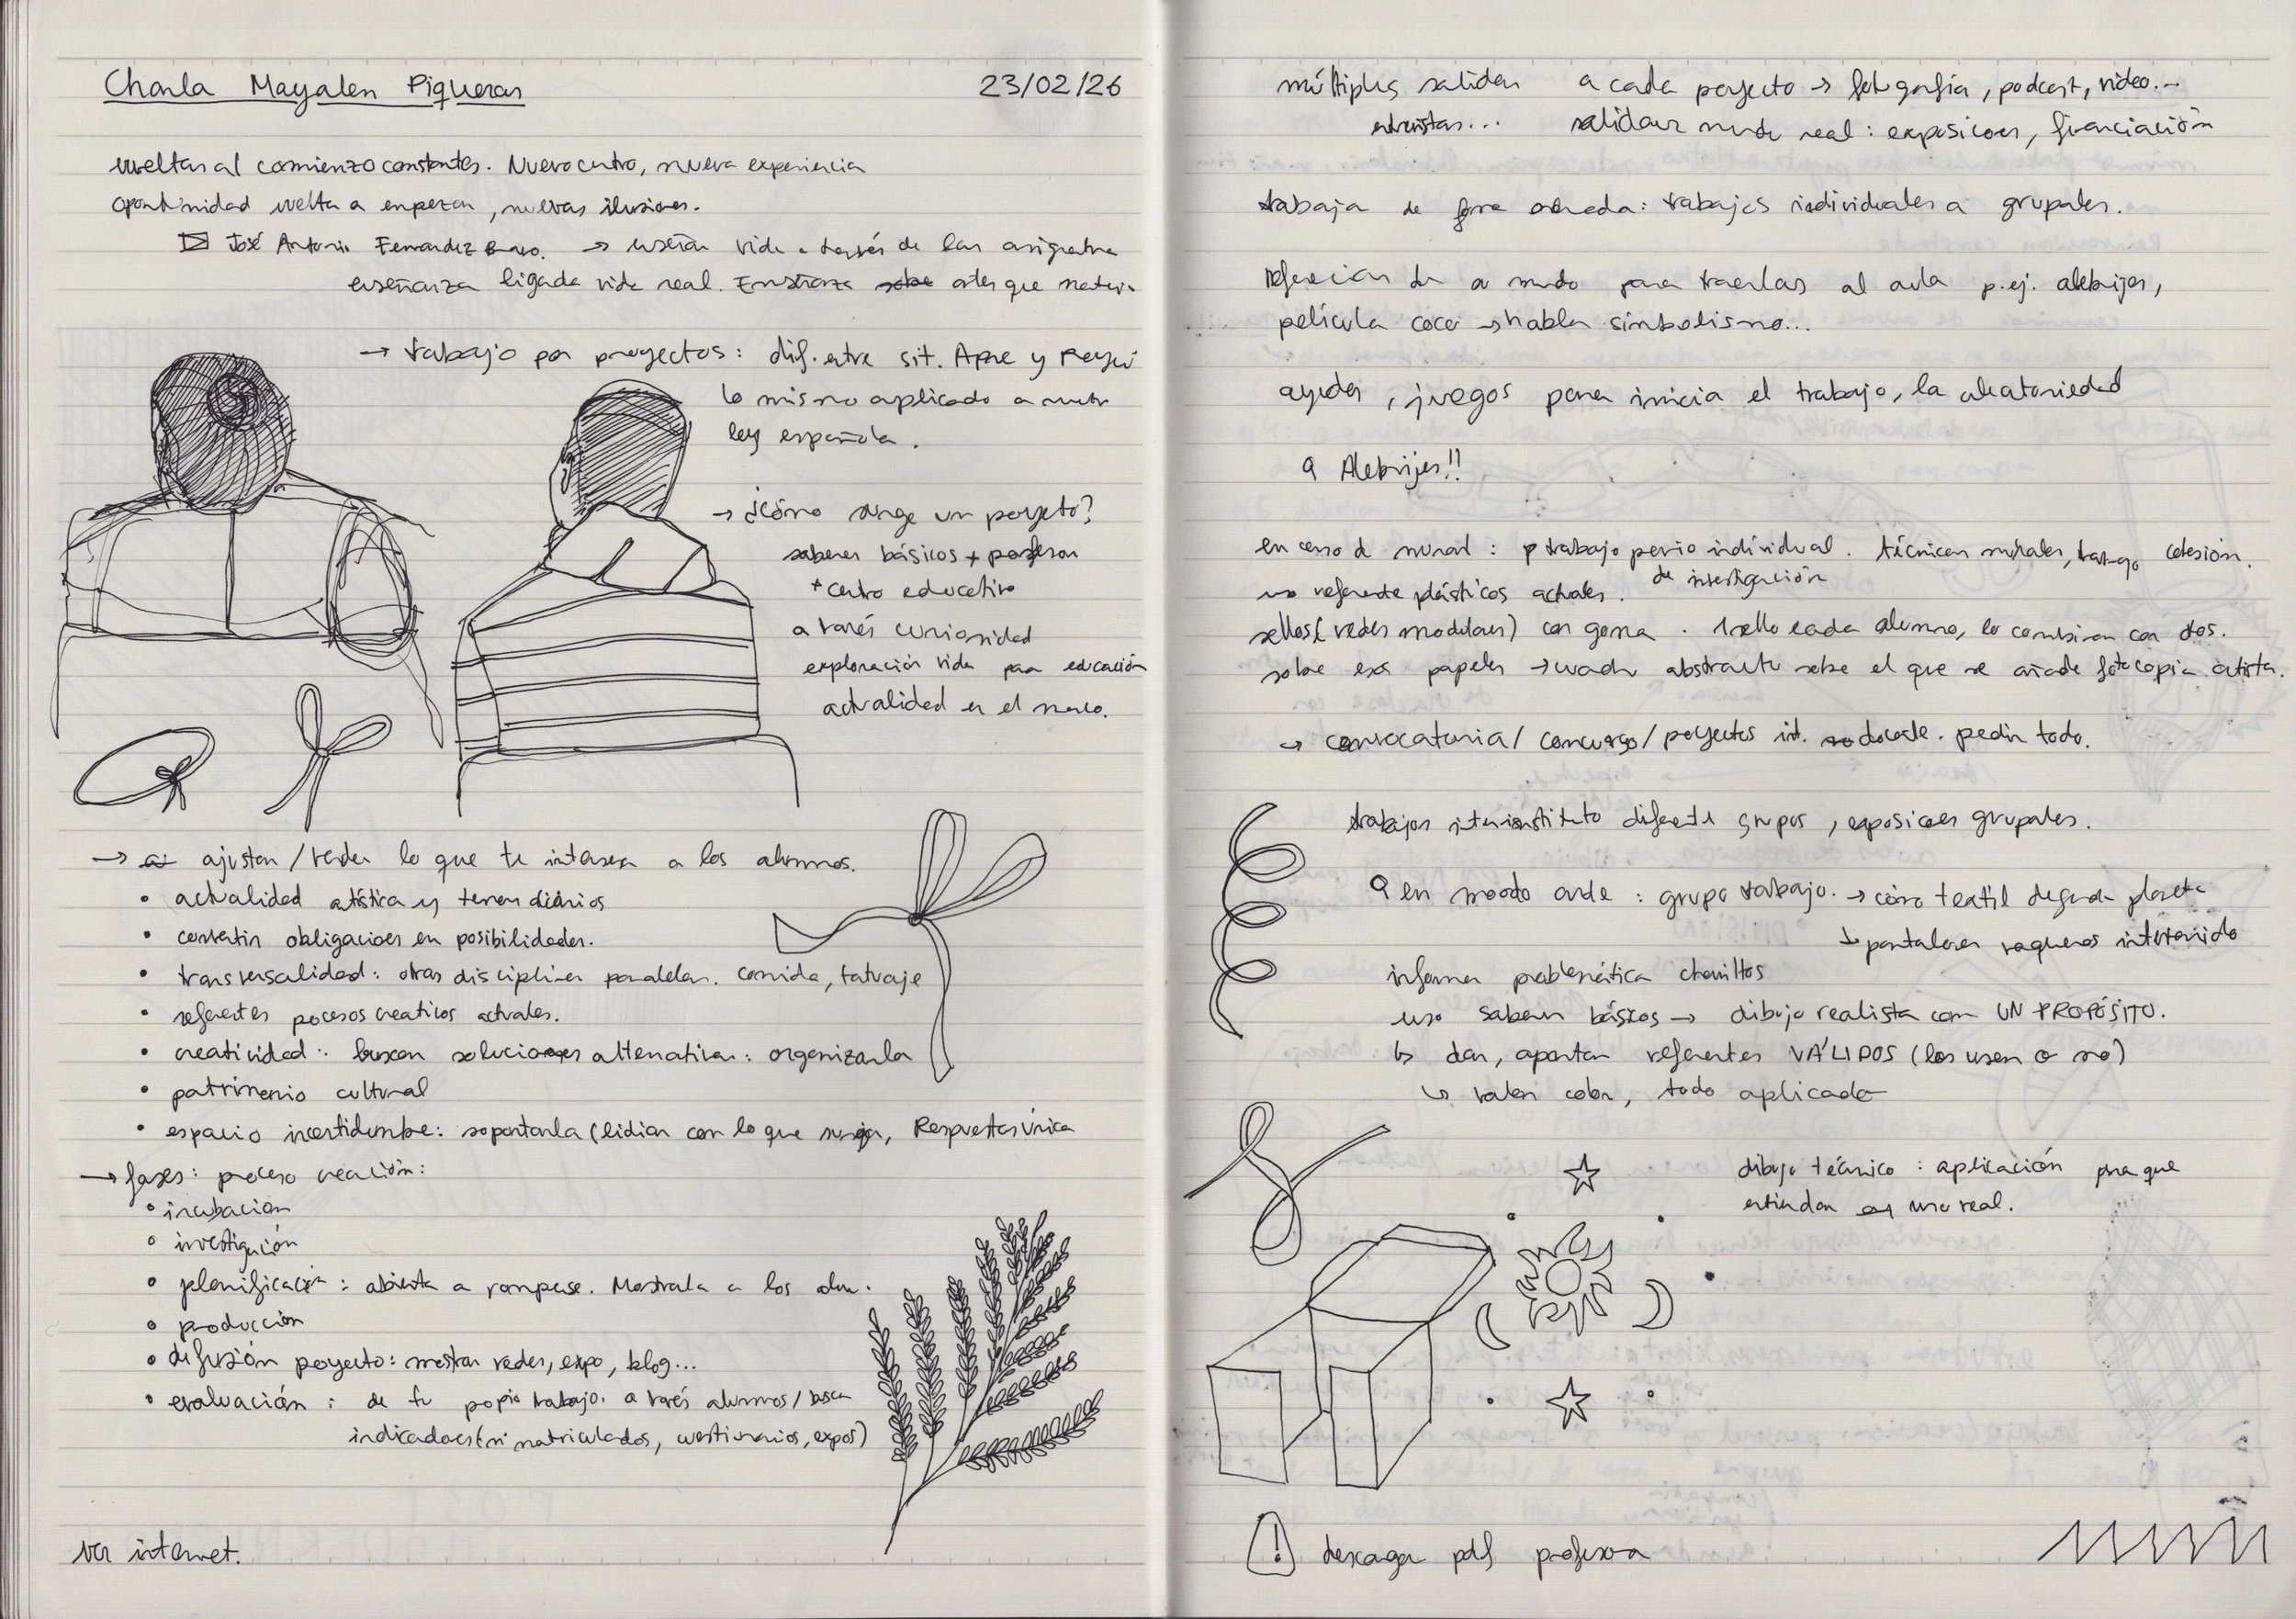 Charla Mayalen Piqueras
23/02/26
vueltas al comienzo constantes. Nuevo centro, nueva experiencia
oportunidad vuelta a empezar, nuevas ilusiones.
José Antonio Fernández Bravo. → enseñar vida a través de las asignatura
enseñanza ligada vida real. Enseñanza antes que materia
→ trabajo por proyectos: dif. entre sit. Apre y Proyec
lo mismo aplicado a nuestr
ley española.
→ ¿cómo surge un proyecto?
saberes básicos + profesor
+ centro educativo
a través curiosidad
exploración vida para educación
actualidad en el marco.
→ ajustar / vender lo que te interesa a los alumnos.
• actualidad artística y temas diarios
• convertir obligaciones en posibilidades.
• transversalidad: otras disciplinas paralelas. comida, tatuaje
• referentes procesos creativos actuales.
• creatividad: buscan soluciones alternativas: organizarla
• patrimonio cultural
• espacio incertidumbre: soportarla (lidiar con lo que surja, Respuesta única
→ fases: proceso creación:
• incubación
• investigación
• planificación: abierta a romperse. Mostrarla a los alum.
• producción
• difusión proyecto: mostrar redes, expo, blog...
• evaluación: de tu propio trabajo. a través alumnos / busca
indicadores (nº matriculados, cuestionarios, expos)
ver internet.
múltiples salidas a cada proyecto → fotografía, podcast, video...
entrevistas... salidas mundo real: exposiciones, financiación
trabaja de forma ordenada: trabajos individuales a grupales.
referencias del mundo para traerlas al aula p.ej. alebrijes,
película coco → habla simbolismo...
ayudas, juegos para inicia el trabajo, la aleatoriedad
Alebrijes!!
en caso de mural: trabajo previo individual. técnicas murales, cohesión.
de investigación
uso referente plásticos actuales.
sellos (redes modulares) con goma. 1 sello cada alumno, lo combinan con dos.
sobre esos papeles → cuadro abstracto sobre el que se añade fotocopia artista.
→ convocatoria / concurso / proyectos int. docente. pedir todo.
trabajos interinstituto diferente grupos, exposiciones grupales.
en modo arde: grupo trabajo. → cómo textil degrada planeta
↳ pantalones vaqueros intervenido
informar problemática chavillos
uso saberes básicos → dibujo realista con UN PROPÓSITO.
↳ dar, aportar referentes VÁLIDOS (los usen o no)
↳ valen color, todo aplicado
dibujo técnico: aplicación para que
entiendan uso real.
! descargar pdf profesora